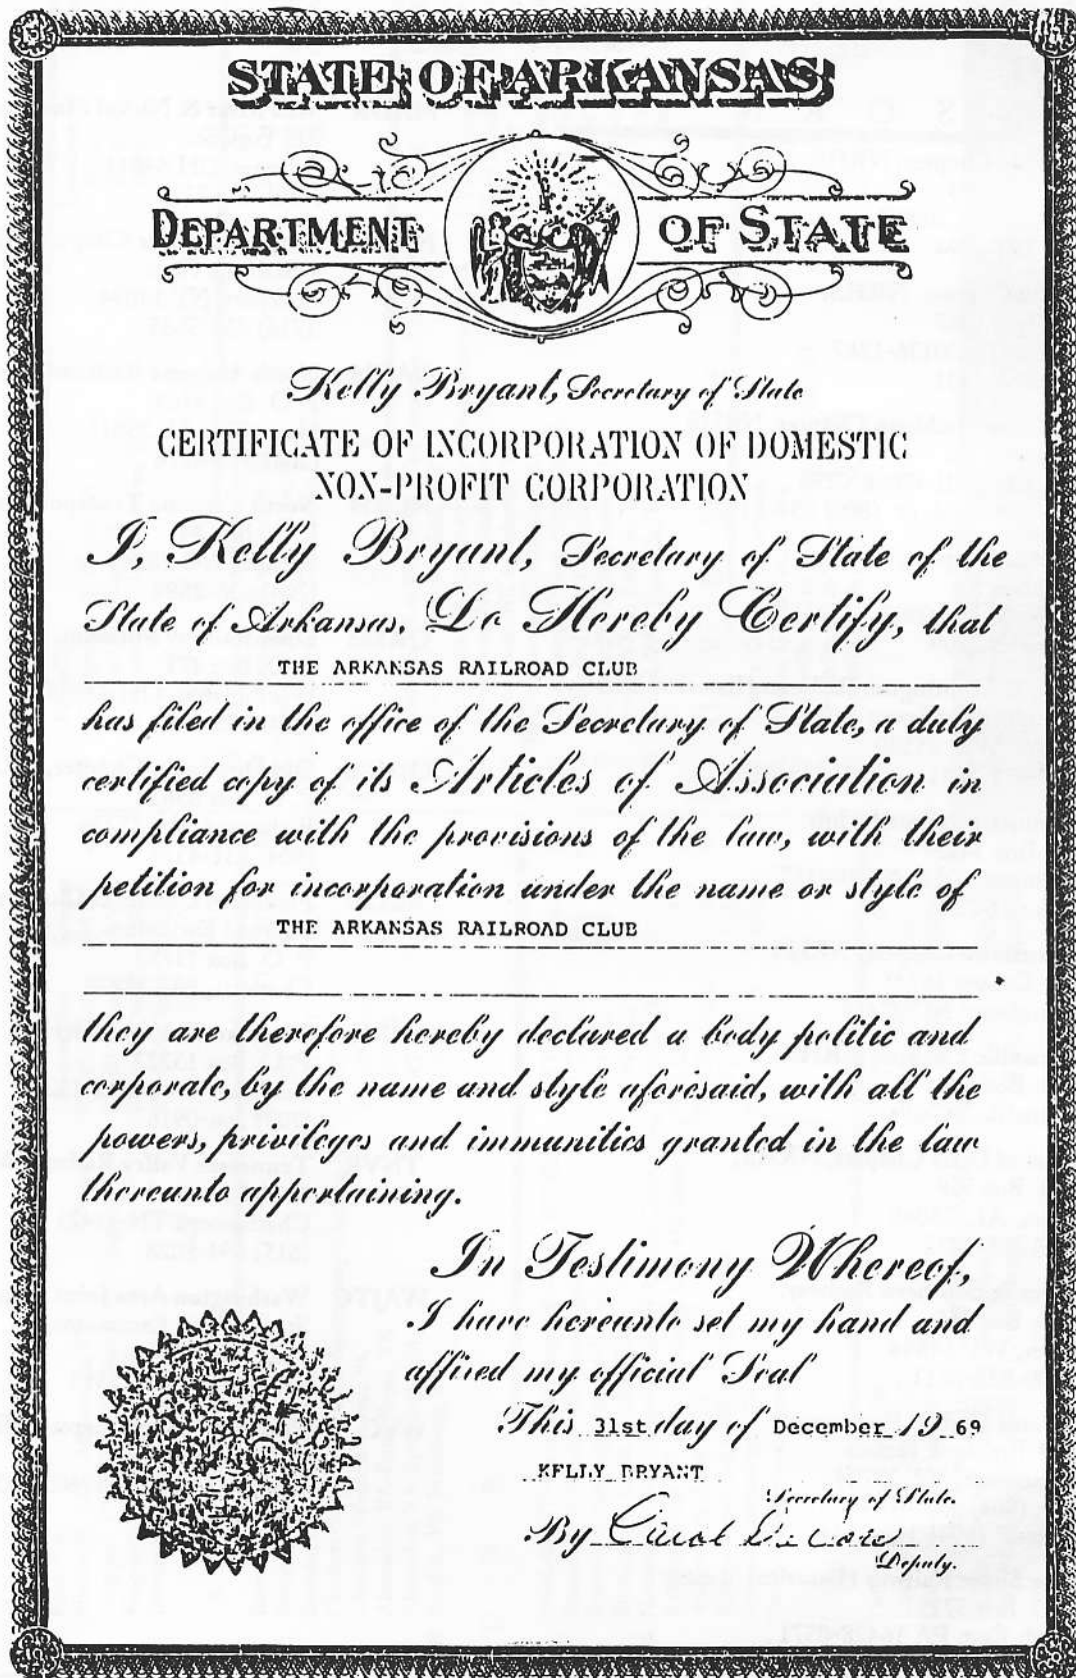 STATE OF ARKANSAS
DEPARTMENT OF STATE
Kelly Bryant, Secretary of State
CERTIFICATE OF INCORPORATION OF DOMESTIC
NON-PROFIT CORPORATION
I, Kelly Bryant, Secretary of State of the
State of Arkansas, Do Hereby Certify, that
THE ARKANSAS RAILROAD CLUB
has filed in the office of the Secretary of State, a duly
certified copy of its Articles of Association in
compliance with the provisions of the law, with their
petition for incorporation under the name or style of
THE ARKANSAS RAILROAD CLUB
they are therefore hereby declared a body politic and
corporate, by the name and style aforesaid, with all the
powers, privileges and immunities granted in the law
thereunto appertaining.
In Testimony Whereof,
I have hereunto set my hand and
affixed my official Seal
This 31st day of December 19 69
KELLY BRYANT
Secretary of State.
By Carol
Deputy.